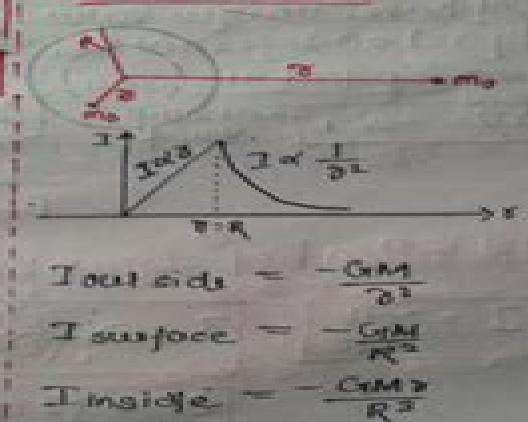 R
r
r
m₀
m₀
I
I ∝ r
I ∝ 1/r²
r = R
r
I out side = -GM/r²
I surface = -GM/R²
I inside = -GMr/R³